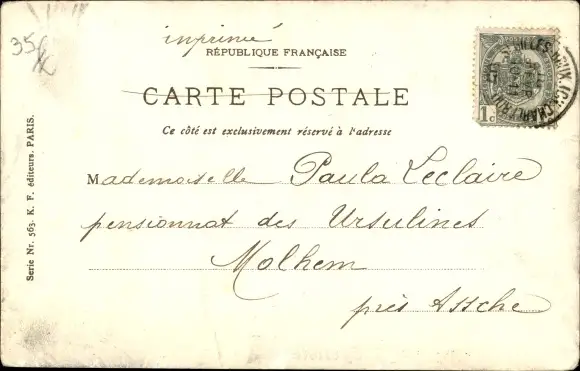 imprimé
RÉPUBLIQUE FRANÇAISE
CARTE POSTALE
Ce côté est exclusivement réservé à l'adresse
Mademoiselle Paula Leclaire
pensionnat des Ursulines
Molhem
près Assche
Serie Nr. 563. K. F. éditeurs, PARIS.
1c